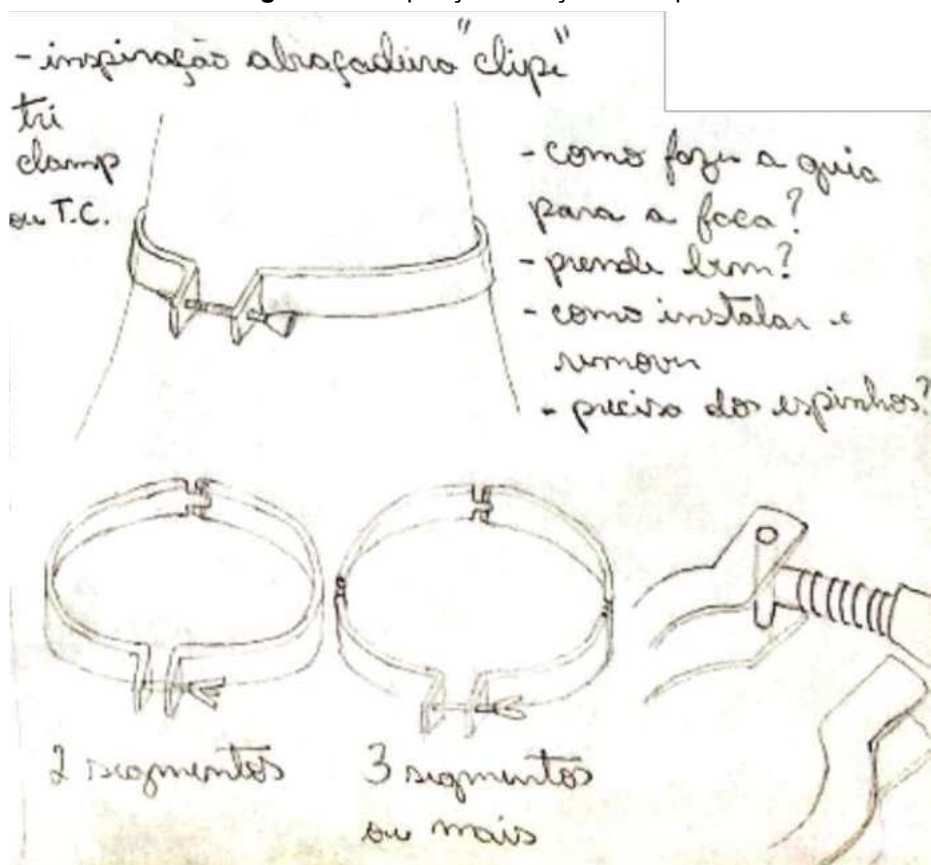 - inspiração abraçadeira "clipe"
tri
clamp
ou T.C.
- como fazer a guia
para a faca?
- prende bem?
- como instalar e
remover
- precisa dos espinhos?
2 segmentos
3 segmentos
ou mais